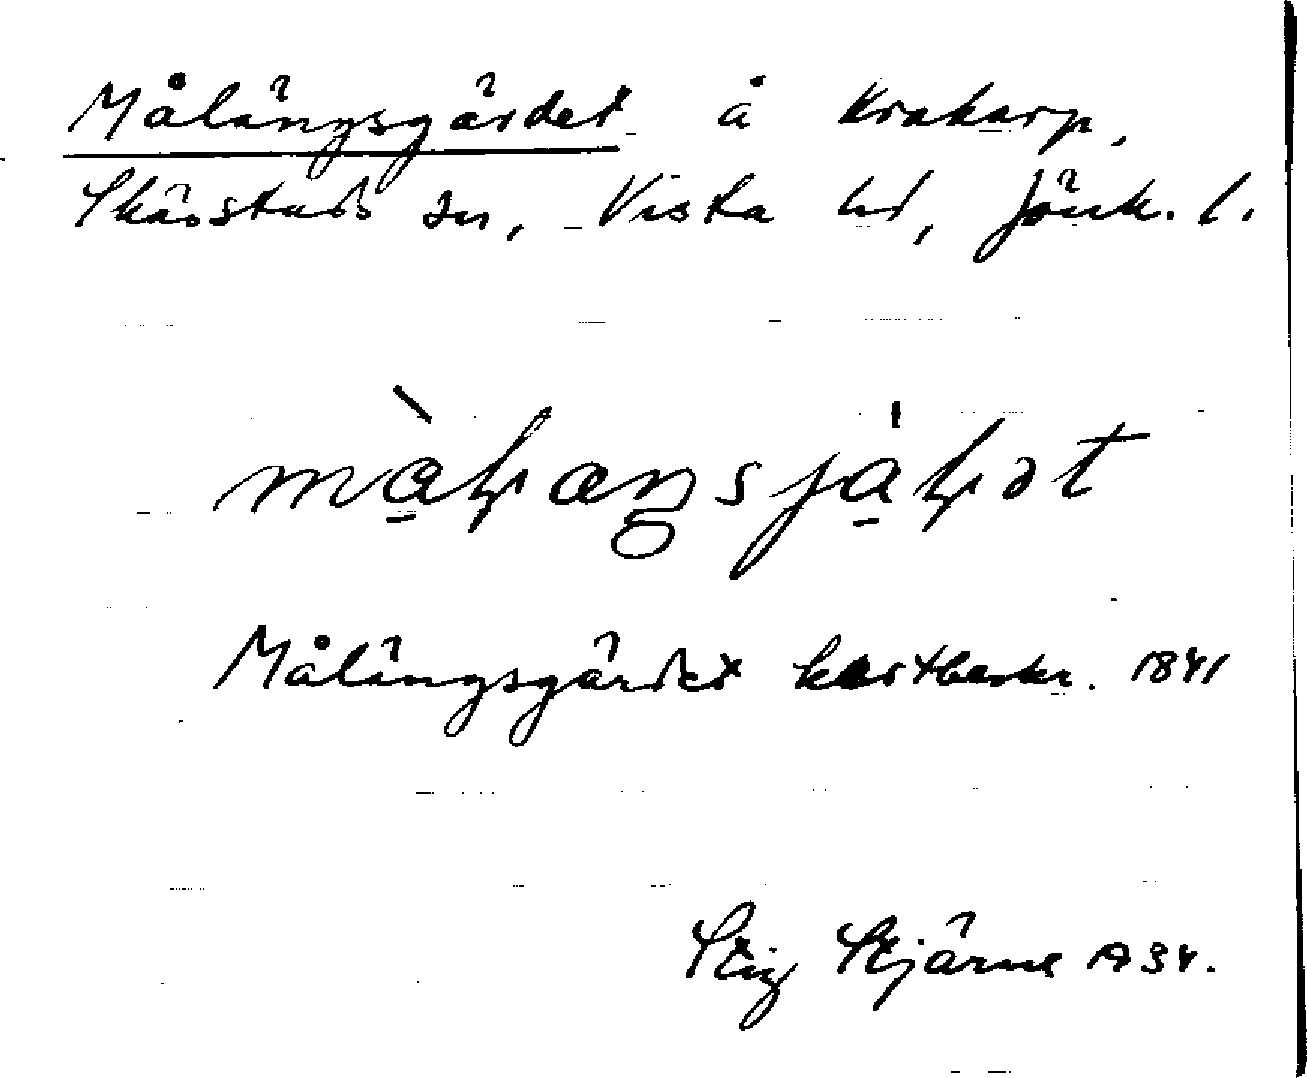 Målängsgärdet å Krakarp,
Skärstads sn, Vista hd, Jönk. l.
Målängsgärdet kartbeskr. 1841
Stig Stjärne 1934.